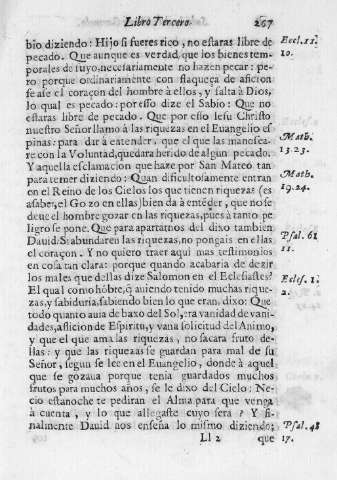 Libro Tercero. 267
bio diziendo: Hijo si fueres rico, no estaras libre de
pecado. Que aunque es verdad, que los bienes tem-
porales de suyo, necessariamente no hazen pecar: pe-
ro porque ordinariamente con flaqueça de aficion
se ase el coraçon del hombre à ellos, y falta à Dios,
lo qual es pecado: por esso dize el Sabio: Que no
estaras libre de pecado. Que por esso Iesu Christo
nuestro Señor llamo à las riquezas en el Euangelio es
pinas: para dar à entender, que el que las manosea-
re con la Voluntad, quedara herido de algun pecado.
Y aquella esclamacion que haze por San Mateo tan
para temer diziendo: Quan dificultosamente entran
en el Reino de los Cielos los que tienen riquezas (es
asaber, el Gozo en ellas) bien da à entēder, que no se
deue el hombre gozar en las riquezas, pues à tanto pe
ligro se pone. Que para apartarnos del dixo tambien
Dauid: Si abundaren las riquezas, no pongais en ellas
el coraçon. Y no quiero traer aqui mas testimonios
en cosa tan clara: porque quando acabaria de dezir
los males que dellas dize Salomon en el Eclesiastes?
El qual como hōbre, q̄ auiendo tenido muchas rique-
zas, y sabiduria, sabiendo bien lo que eran, dixo: Que
todo quanto auia debaxo del Sol, era vanidad de vani-
dades, aflicion de Espiritu, y vana solicitud del Animo,
y que el que ama las riquezas, no sacara fruto de-
llas: y que las riquezas se guardan para mal de su
Señor, segun se lee en el Euangelio, donde à aquel
que se gozaua porque tenia guardados muchos
frutos para muchos años, se le dixo del Cielo: Ne-
cio esta noche te pediran el Alma para que venga
à cuenta, y lo que allegaste cuyo sera? Y fi-
nalmente Dauid nos enseña lo mismo diziendo;
Ll 2 que
Eccl. 11.
10.
Math.
13. 23.
Math.
19. 24.
Psal. 61
11.
Ecles. 1.
2.
Psal. 48
17.